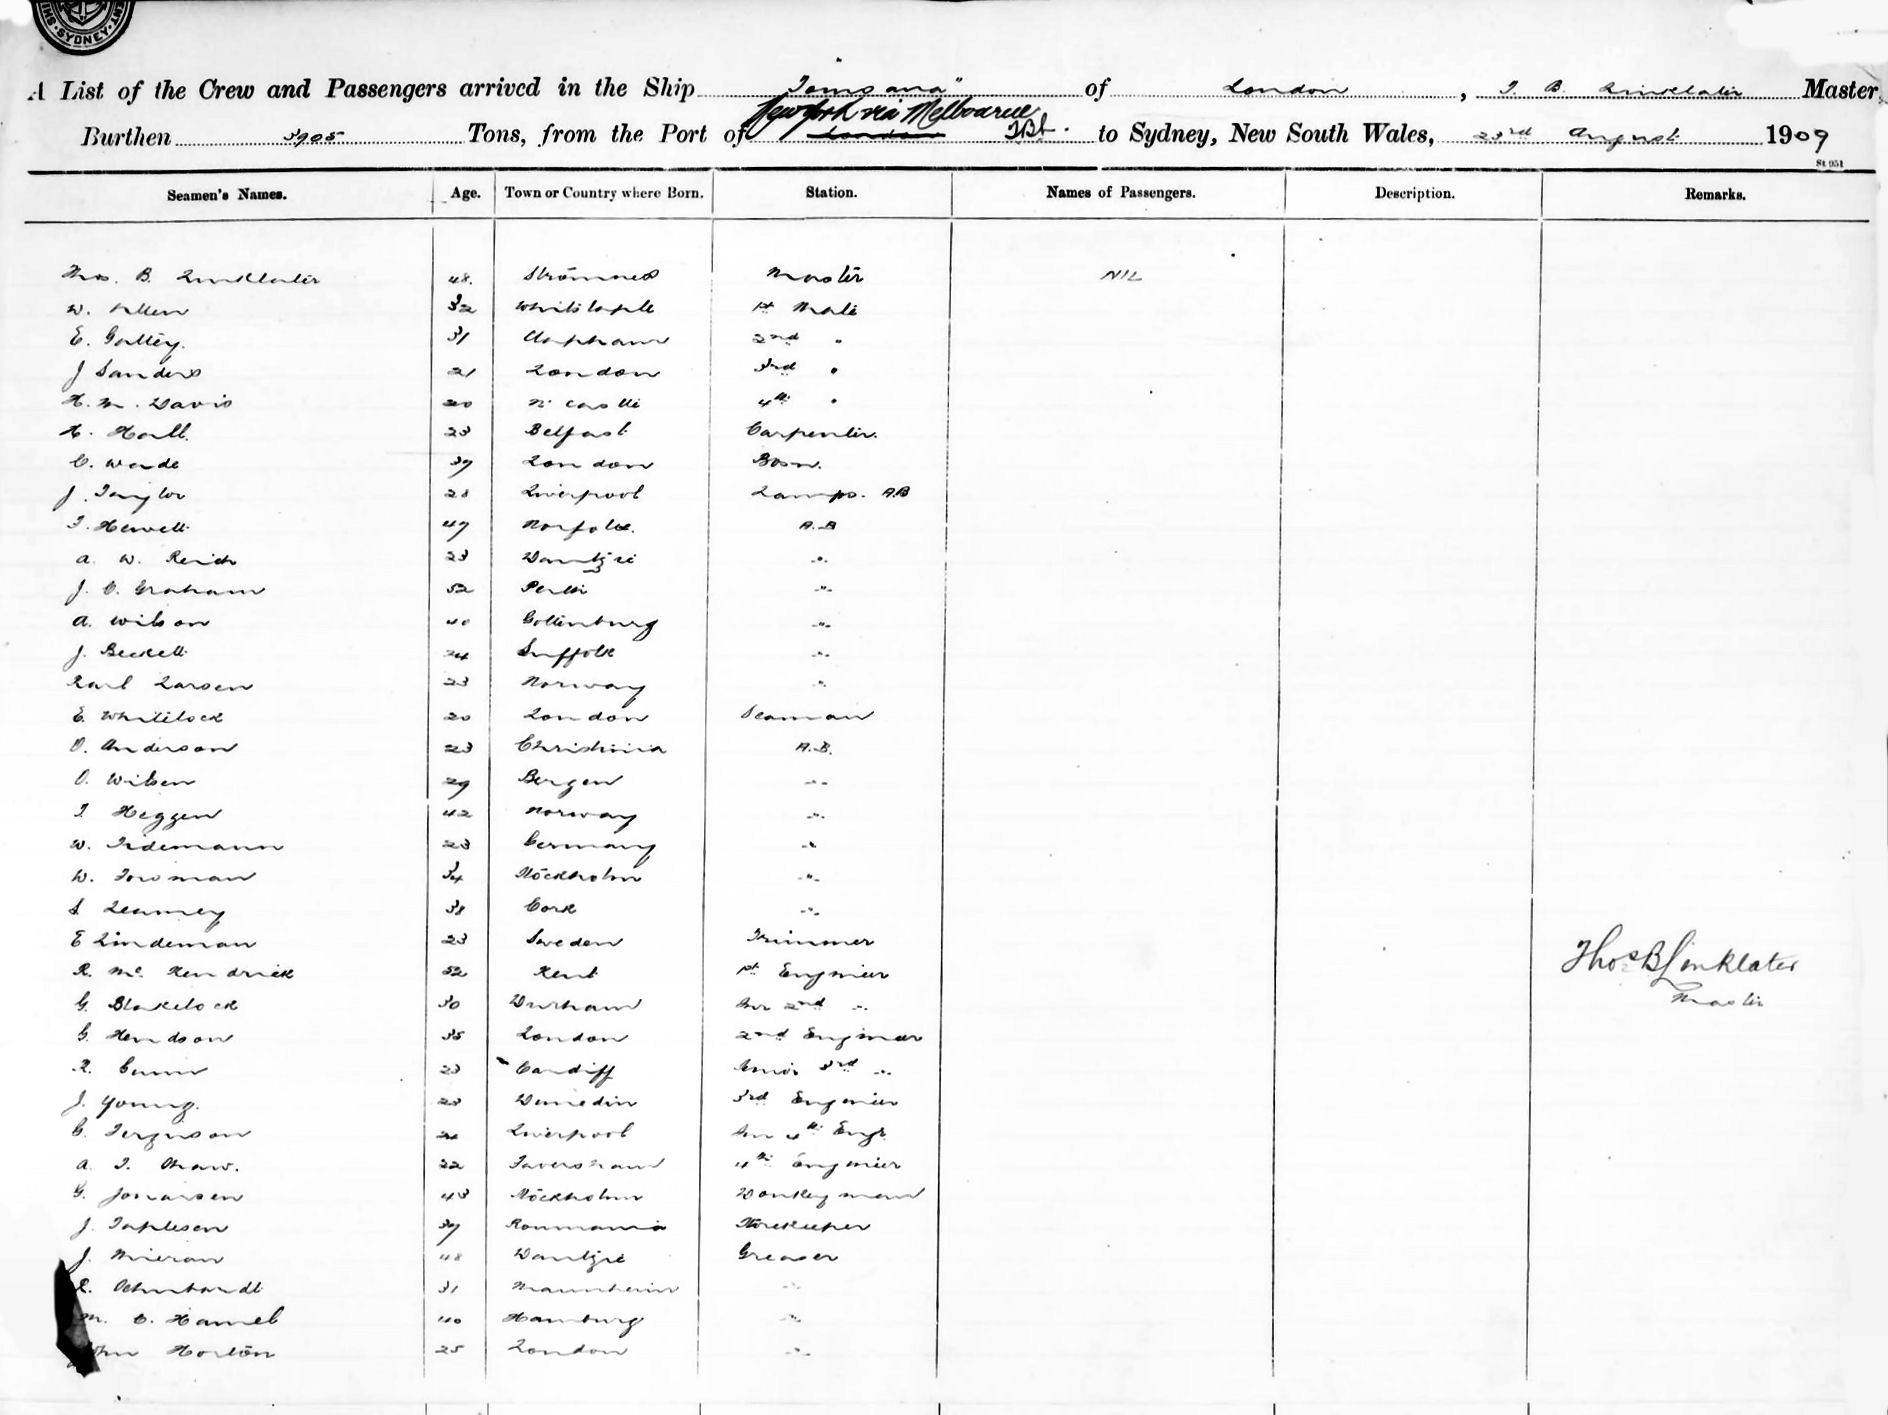 SYDNEY
A List of the Crew and Passengers arrived in the Ship "Tomoana" of London, T. B. Linklater Master,
Burthen Tons, from the Port of London New York via Melbourne TBL. to Sydney, New South Wales, 23rd August 1909
St 951
Seamen's Names. Age. Town or Country where Born. Station. Names of Passengers. Description. Remarks.
Thos. B. Linklater 48. Stromness Master NIL
W. Allen 32 Whitstaple 1st Mate
E. Galley. 31 Clapham 2nd "
J Sanders 21 London 3rd "
H. M. Davis 20 N'castle 4th "
H. Hall. 23 Belfast Carpenter.
C. Wade 39 London Bosn.
J. Taylor 28 Liverpool Lamps. A.B
T. Hewett 47 Norfolk. A.B
A. W. Reich 23 Dantzic "
J. C. Graham 52 Perth "
A. Wilson 40 Gottenburg "
J. Beckett 24 Suffolk "
Karl Larsen 23 Norway "
E. Whitelock 20 London Seaman
O. Anderson 23 Christinia A.B.
O. Wilsen 29 Bergen "
T Heggen 42 Norway "
W. Tidemann 23 Germany "
W. 34 Stockholm "
S Leamey 38 Cork "
E Lindeman 23 Sweden Trimmer
R. Mc Kendrick 52 Kent 1st Engineer
Thos B Linklater
G. Blakelock 30 Durham Snr 2nd "
Master
G. Hendson 35 London 2nd Engineer
R. Gunn 23 Cardiff Senior 3rd "
J. Young. 23 Dunedin 3rd Engineer
C. Ferguson Liverpool Snr 4th Engr.
A. T. Shaw. 22 Faversham 4th Engineer
G. Jonarsen 43 Stockholm Donkeyman
J. Taplesen 39 Roumania Storekeeper
J. Mieran 48 Dantzic Greaser
R. 31 Mannheim "
M. C. Hamel 40 Hamburg "
John Horton 25 London "